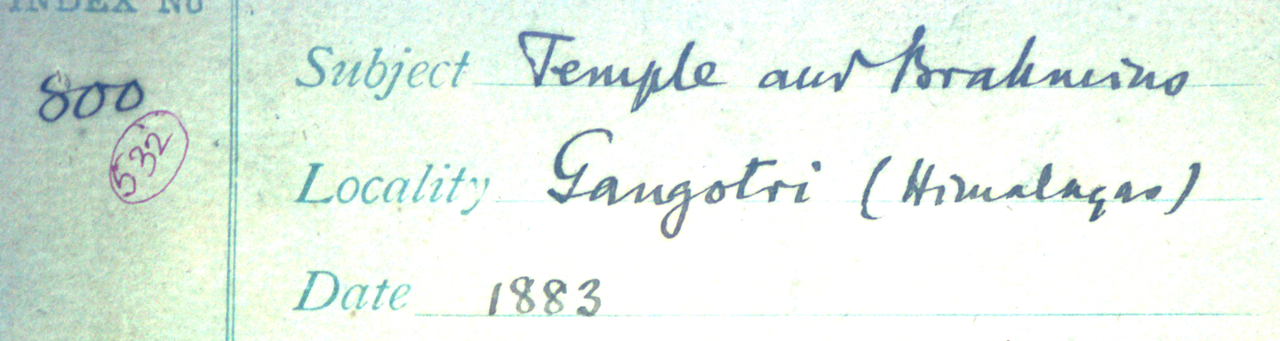 INDEX No
800
532
Subject Temple and Brahmins
Locality Gangotri (Himalayas)
Date 1883